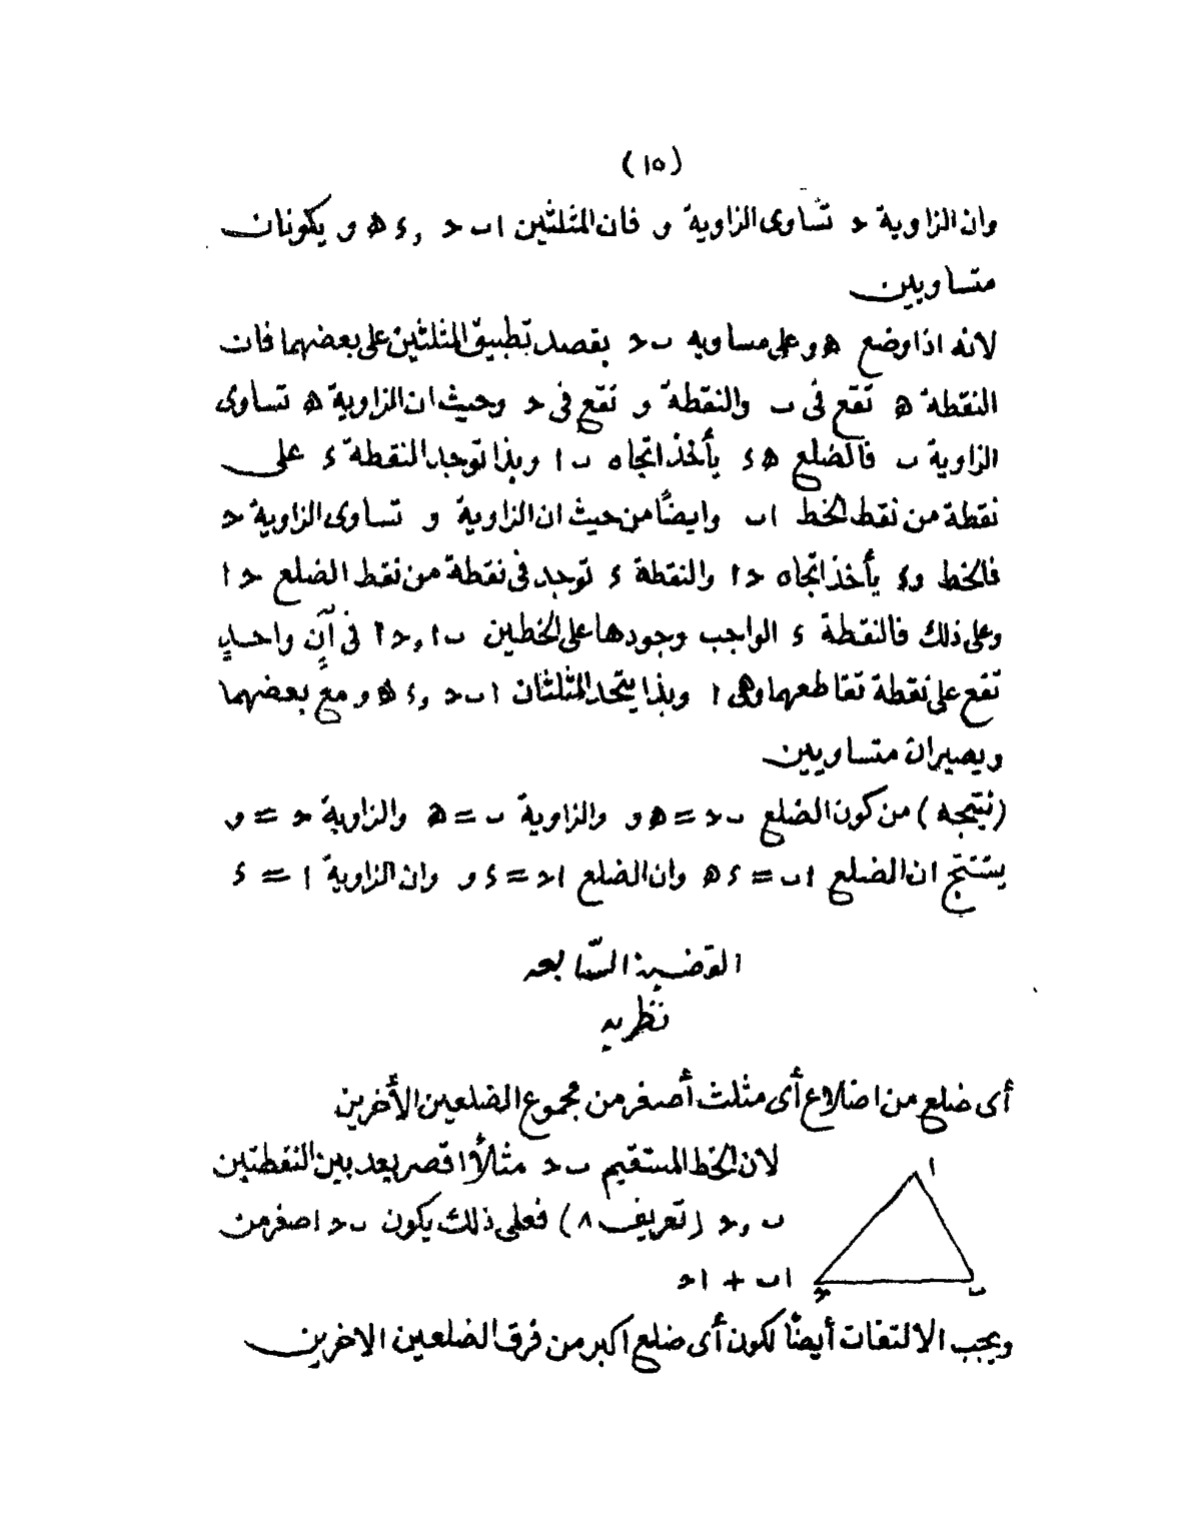 (١٥)
وان الزاوية حـ تساوى الزاوية و فان المثلثين ا ب حـ , د ه و يكونان
متساويين
لانه اذا وضع ه و على مساويه ب حـ بقصد تطبيق المثلثين على بعضهما فان
النقطة ه تقع فى ب والنقطة و تقع فى حـ وحيث ان الزاوية ه تساوى
الزاوية ب فالضلع ه د يأخذ اتجاه ب ا وبذا توجد النقطة د على
نقطة من نقط الخط ا ب وايضًا من حيث ان الزاوية و تساوى الزاوية حـ
فالخط و د يأخذ اتجاه حـ ا والنقطة د توجد فى نقطة من نقط الضلع حـ ا
وعلى ذلك فالنقطة د الواجب وجودها على الخطين ب ا , حـ ا فى آنٍ واحدٍ
تقع على نقطة تقاطعهما وهى ا وبذا يتحد المثلثان ا ب حـ , د ه و مع بعضهما
ويصيران متساويين
(نتيجه) من كون الضلع ب حـ = ه و والزاوية ب = ه والزاوية حـ = و
يستنتج ان الضلع ا ب = د ه وان الضلع ا حـ = د و وان الزاوية ا = د
القضية السّابعه
نظريه
أى ضلع من اضلاع أى مثلث أصغر من مجموع الضلعين الأخرين
لان الخط المستقيم ب حـ مثلاً اقصر بعد بين النقطتين
ب , حـ (تعريف ٨) فعلى ذلك يكون ب حـ اصغر من
ا ب + ا حـ
ا
حـ ب
ويجب الالتفات أيضًا لكون أى ضلع اكبر من فرق الضلعين الاخرين